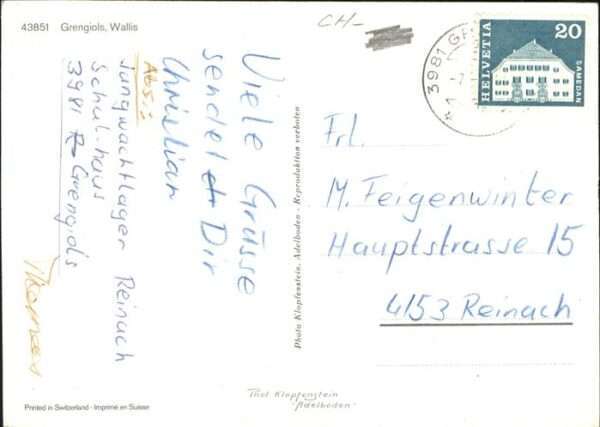 43851 Grengiols, Wallis
CH-
3981 GR
HELVETIA
20
SAMEDAN
Viele Grüsse
sendet Dir
Christian
Abs.:
Jungwachtlager Reinach
Schulhaus
3981 Grengiols
Thomas
Photo Klopfenstein, Adelboden - Reproduktion verboten
Frl.
M. Feigenwinter
Hauptstrasse 15
4153 Reinach
Printed in Switzerland - Imprimé en Suisse
Klopfenstein
"Adelboden"